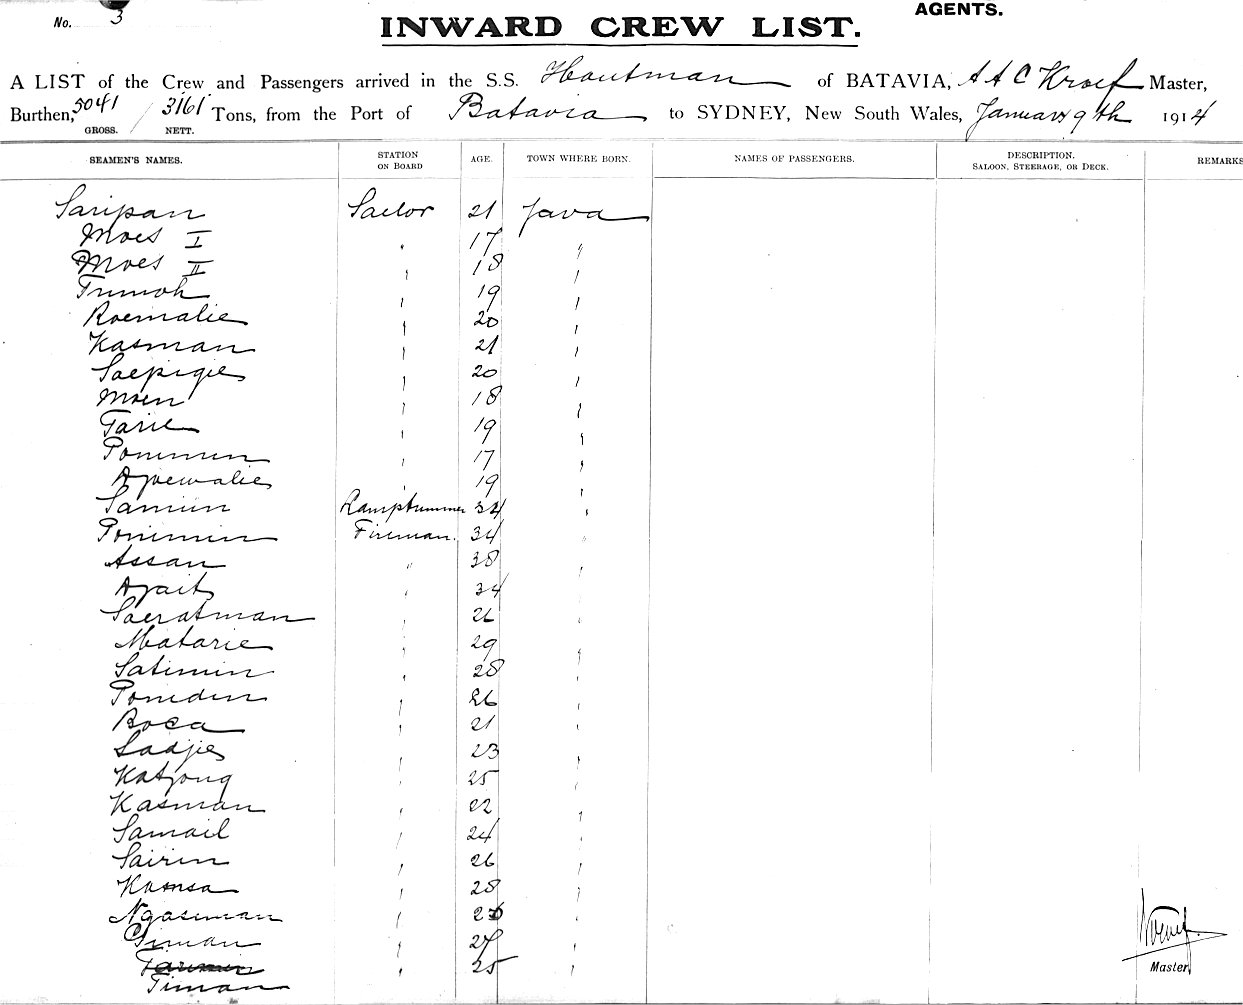 AGENTS.
No. 3
INWARD CREW LIST.
A LIST of the Crew and Passengers arrived in the S.S. Houtman of BATAVIA, A A C Kroef Master,
Burthen, 5041 / 3161 Tons, from the Port of Batavia to SYDNEY, New South Wales, January 9th 1914
GROSS. NETT.
SEAMEN'S NAMES. STATION ON BOARD AGE. TOWN WHERE BORN. NAMES OF PASSENGERS. DESCRIPTION. SALOON, STEERAGE, OR DECK. REMARKS
Saripan Sailor 21 Java
Moes I " 17 "
Moes II " 18 "
Trimoh " 19 "
Roemalie " 20 "
Kasman " 21 "
Saepigie " 20 "
Moen " 18 "
Tarie " 19 "
Ponimin " 17 "
19 "
Samiin Lamptrimmer 34 "
Ponimin Fireman. 34 "
Assan " 38 "
" 34 "
Soeratman " 26 "
Matarie " 29 "
Satimin " 28 "
Ponidin " 26 "
Roea " 21 "
Sadjie " 23 "
Katjong " 25 "
Kasman " 22 "
Samail " 24 "
Sairin " 26 "
Kamsa " 28 "
Ngasiman " "
Siman " 27 "
" 25 "
Timan
Kroef
Master